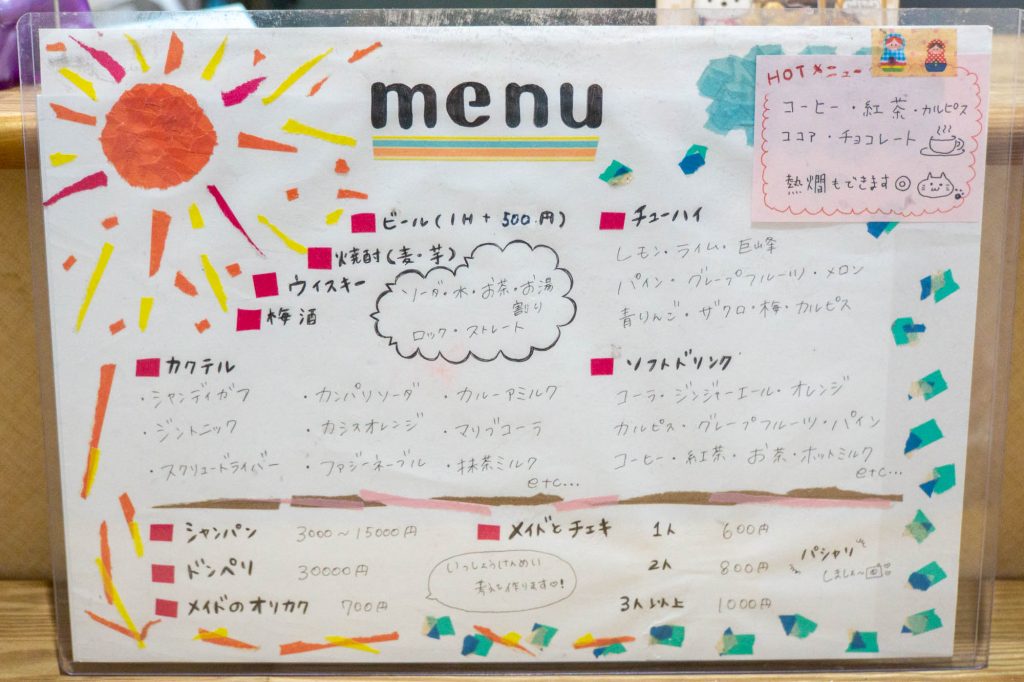 menu
HOTメニュー
コーヒー・紅茶・カルピス
ココア・チョコレート
熱燗もできます◎
ビール(1H+500円)
焼酎(麦・芋)
ウィスキー
梅酒
ソーダ・水・お茶・お湯
割り
ロック・ストレート
チューハイ
レモン・ライム・巨峰
パイン・グレープフルーツ・メロン
青りんご・ザクロ・梅・カルピス
カクテル
・シャンディガフ ・カンパリソーダ ・カルーアミルク
・ジントニック ・カシスオレンジ ・マリブコーラ
・スクリュードライバー ・ファジーネーブル ・抹茶ミルク
etc...
ソフトドリンク
コーラ・ジンジャーエール・オレンジ
カルピス・グレープフルーツ・パイン
コーヒー・紅茶・お茶・ホットミルク
etc...
シャンパン 3000～15000円
ドンペリ 30000円
メイドのオリカク 700円
いっしょうけんめい
考えて作ります♡!
メイドとチェキ 1人 600円
2人 800円
3人以上 1000円
パシャリ
しましょ〜